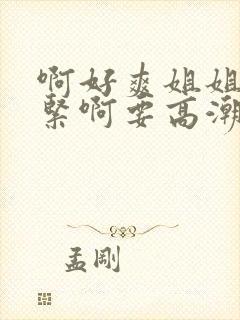 啊好爽姐姐
緊啊要高潮
孟剛